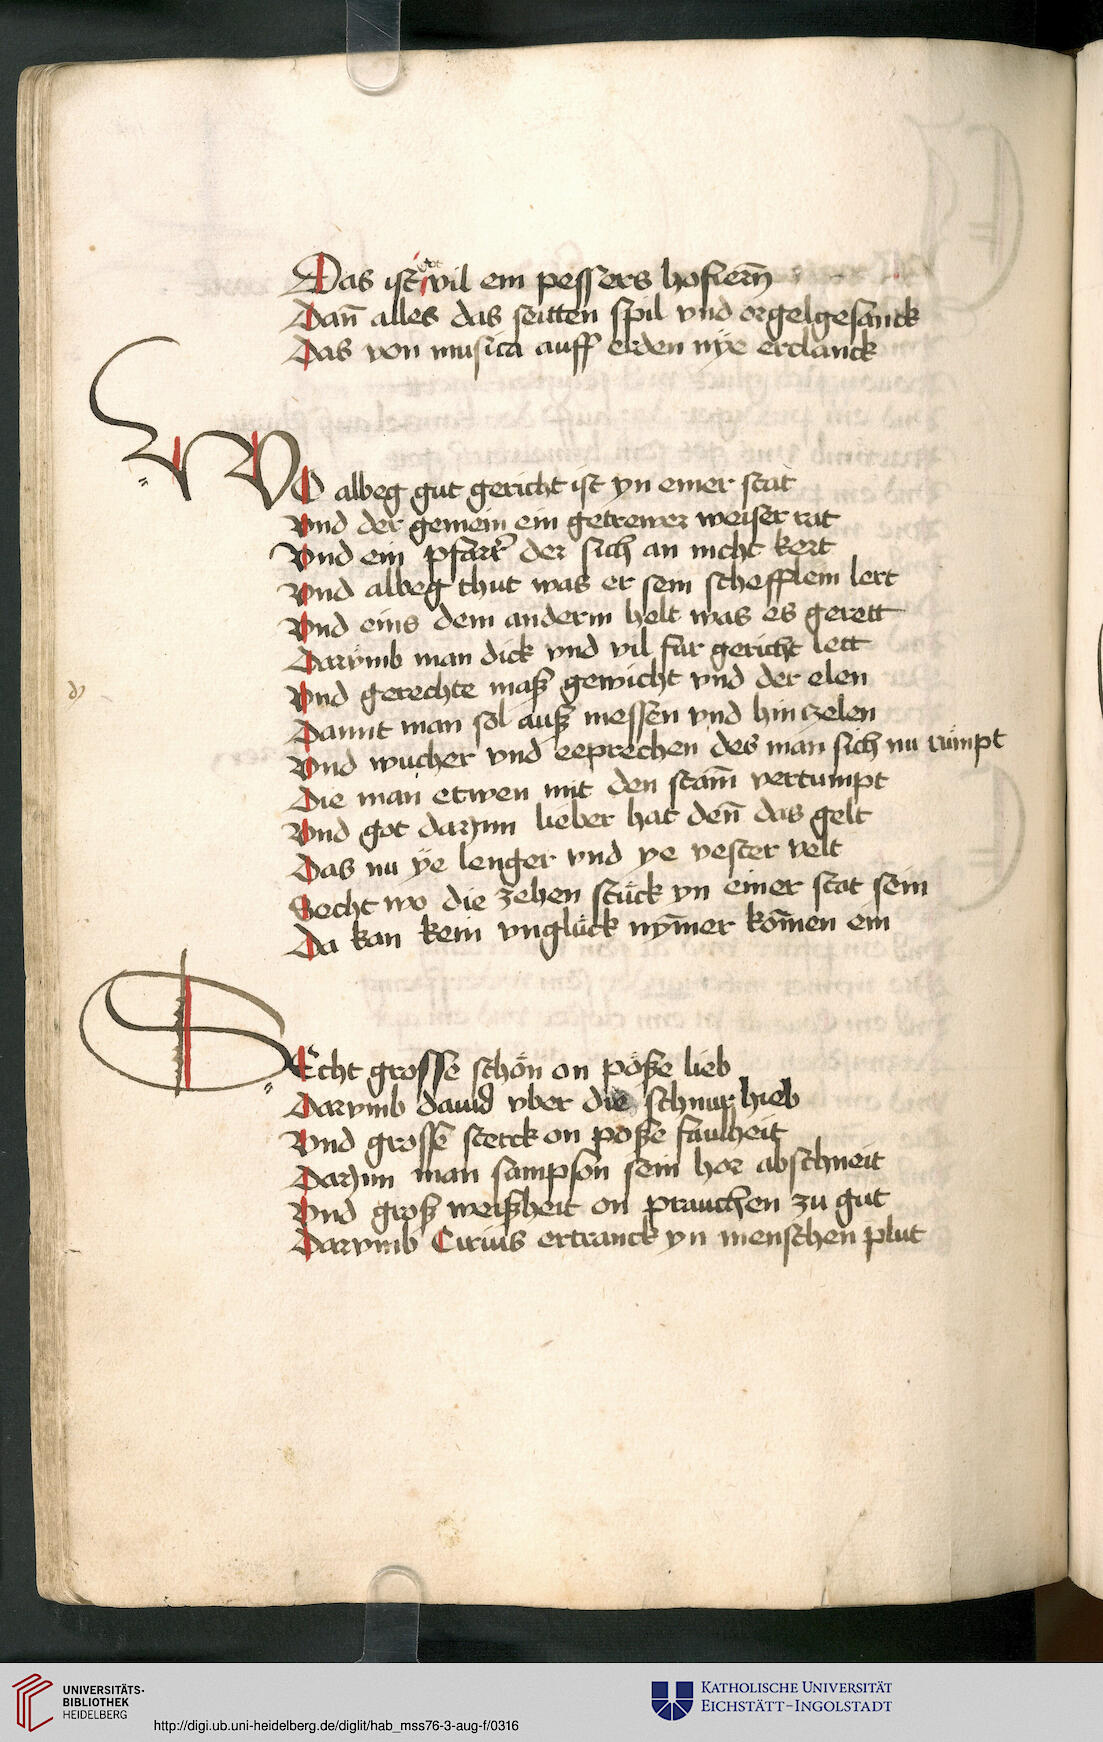 Das ist got vil ein pessers hofiern̄
Dan̄ alles das seitten spil vnd orgelgesanck
Das von musica auff erden nÿe erclanck
WO albeg gut gericht ist yn einer stat
Vnd der gemein ein getrewer weiser rat
Vnd ein pfarr̄ der sich an nicht kert
Vnd albeg thut was er sein schefflein lert
Vnd eins dem anderm helt was es gerett
Darvmb man dick vnd vil fur gericht lett
Vnd gerechte maß gewicht vnd der elen
Damit man sol auß messen vnd hin zelen
Vnd wucher vnd eeprechen des man sich nu rümpt
Die man etwen mit den stam̄ vertumpt
Vnd got darynn lieber hat den̄ das gelt
Das nu ÿe lenger vnd ye vester velt
Secht wo die zehen stück yn einer stat sein
Da kan kein vnglück nym̄er kom̄en ein
SEcht grosse schön on pöße lieb
Darvmb dauid vber die schnur hieb
Vnd grosse sterck on poße faulheit
Darynn man sampson sein hor abschneit
Vnd groß weißheit on prauchen zu gut
Darvmb Cirius ertranck yn menschen plut
UNIVERSITÄTS-
BIBLIOTHEK
HEIDELBERG
http://digi.ub.uni-heidelberg.de/diglit/hab_mss76-3-aug-f/0316
KATHOLISCHE UNIVERSITÄT
EICHSTÄTT-INGOLSTADT